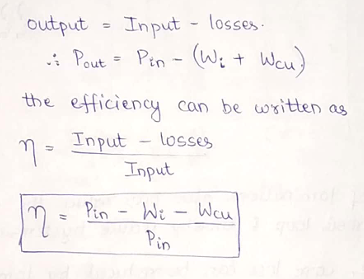 output = Input - losses.
∴ Pout = Pin - (Wi + Wcu)
the efficiency can be written as
η = Input - losses / Input
η = Pin - Wi - Wcu / Pin